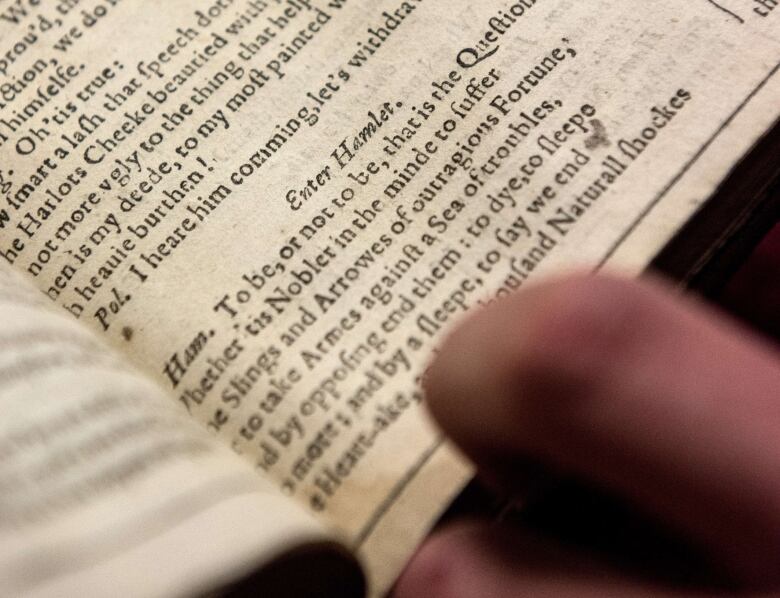 We
prou'd, th
ction, we do
himselfe.
Oh 'tis true:
smart a lash that speech dot
he Harlots Cheeke beautied with
not more vgly to the thing that help
hen is my deede, to my most painted w
h heauie burthen!
Pol. I heare him comming, let's withdra
Enter Hamlet.
Ham. To be, or not to be, that is the Question
hether 'tis Nobler in the minde to suffer
he Slings and Arrowes of outragious Fortune,
to take Armes against a Sea of troubles,
nd by opposing end them: to dye, to sleepe
more; and by a sleepe, to say we end
e Heart-ake, housand Naturall shockes
th